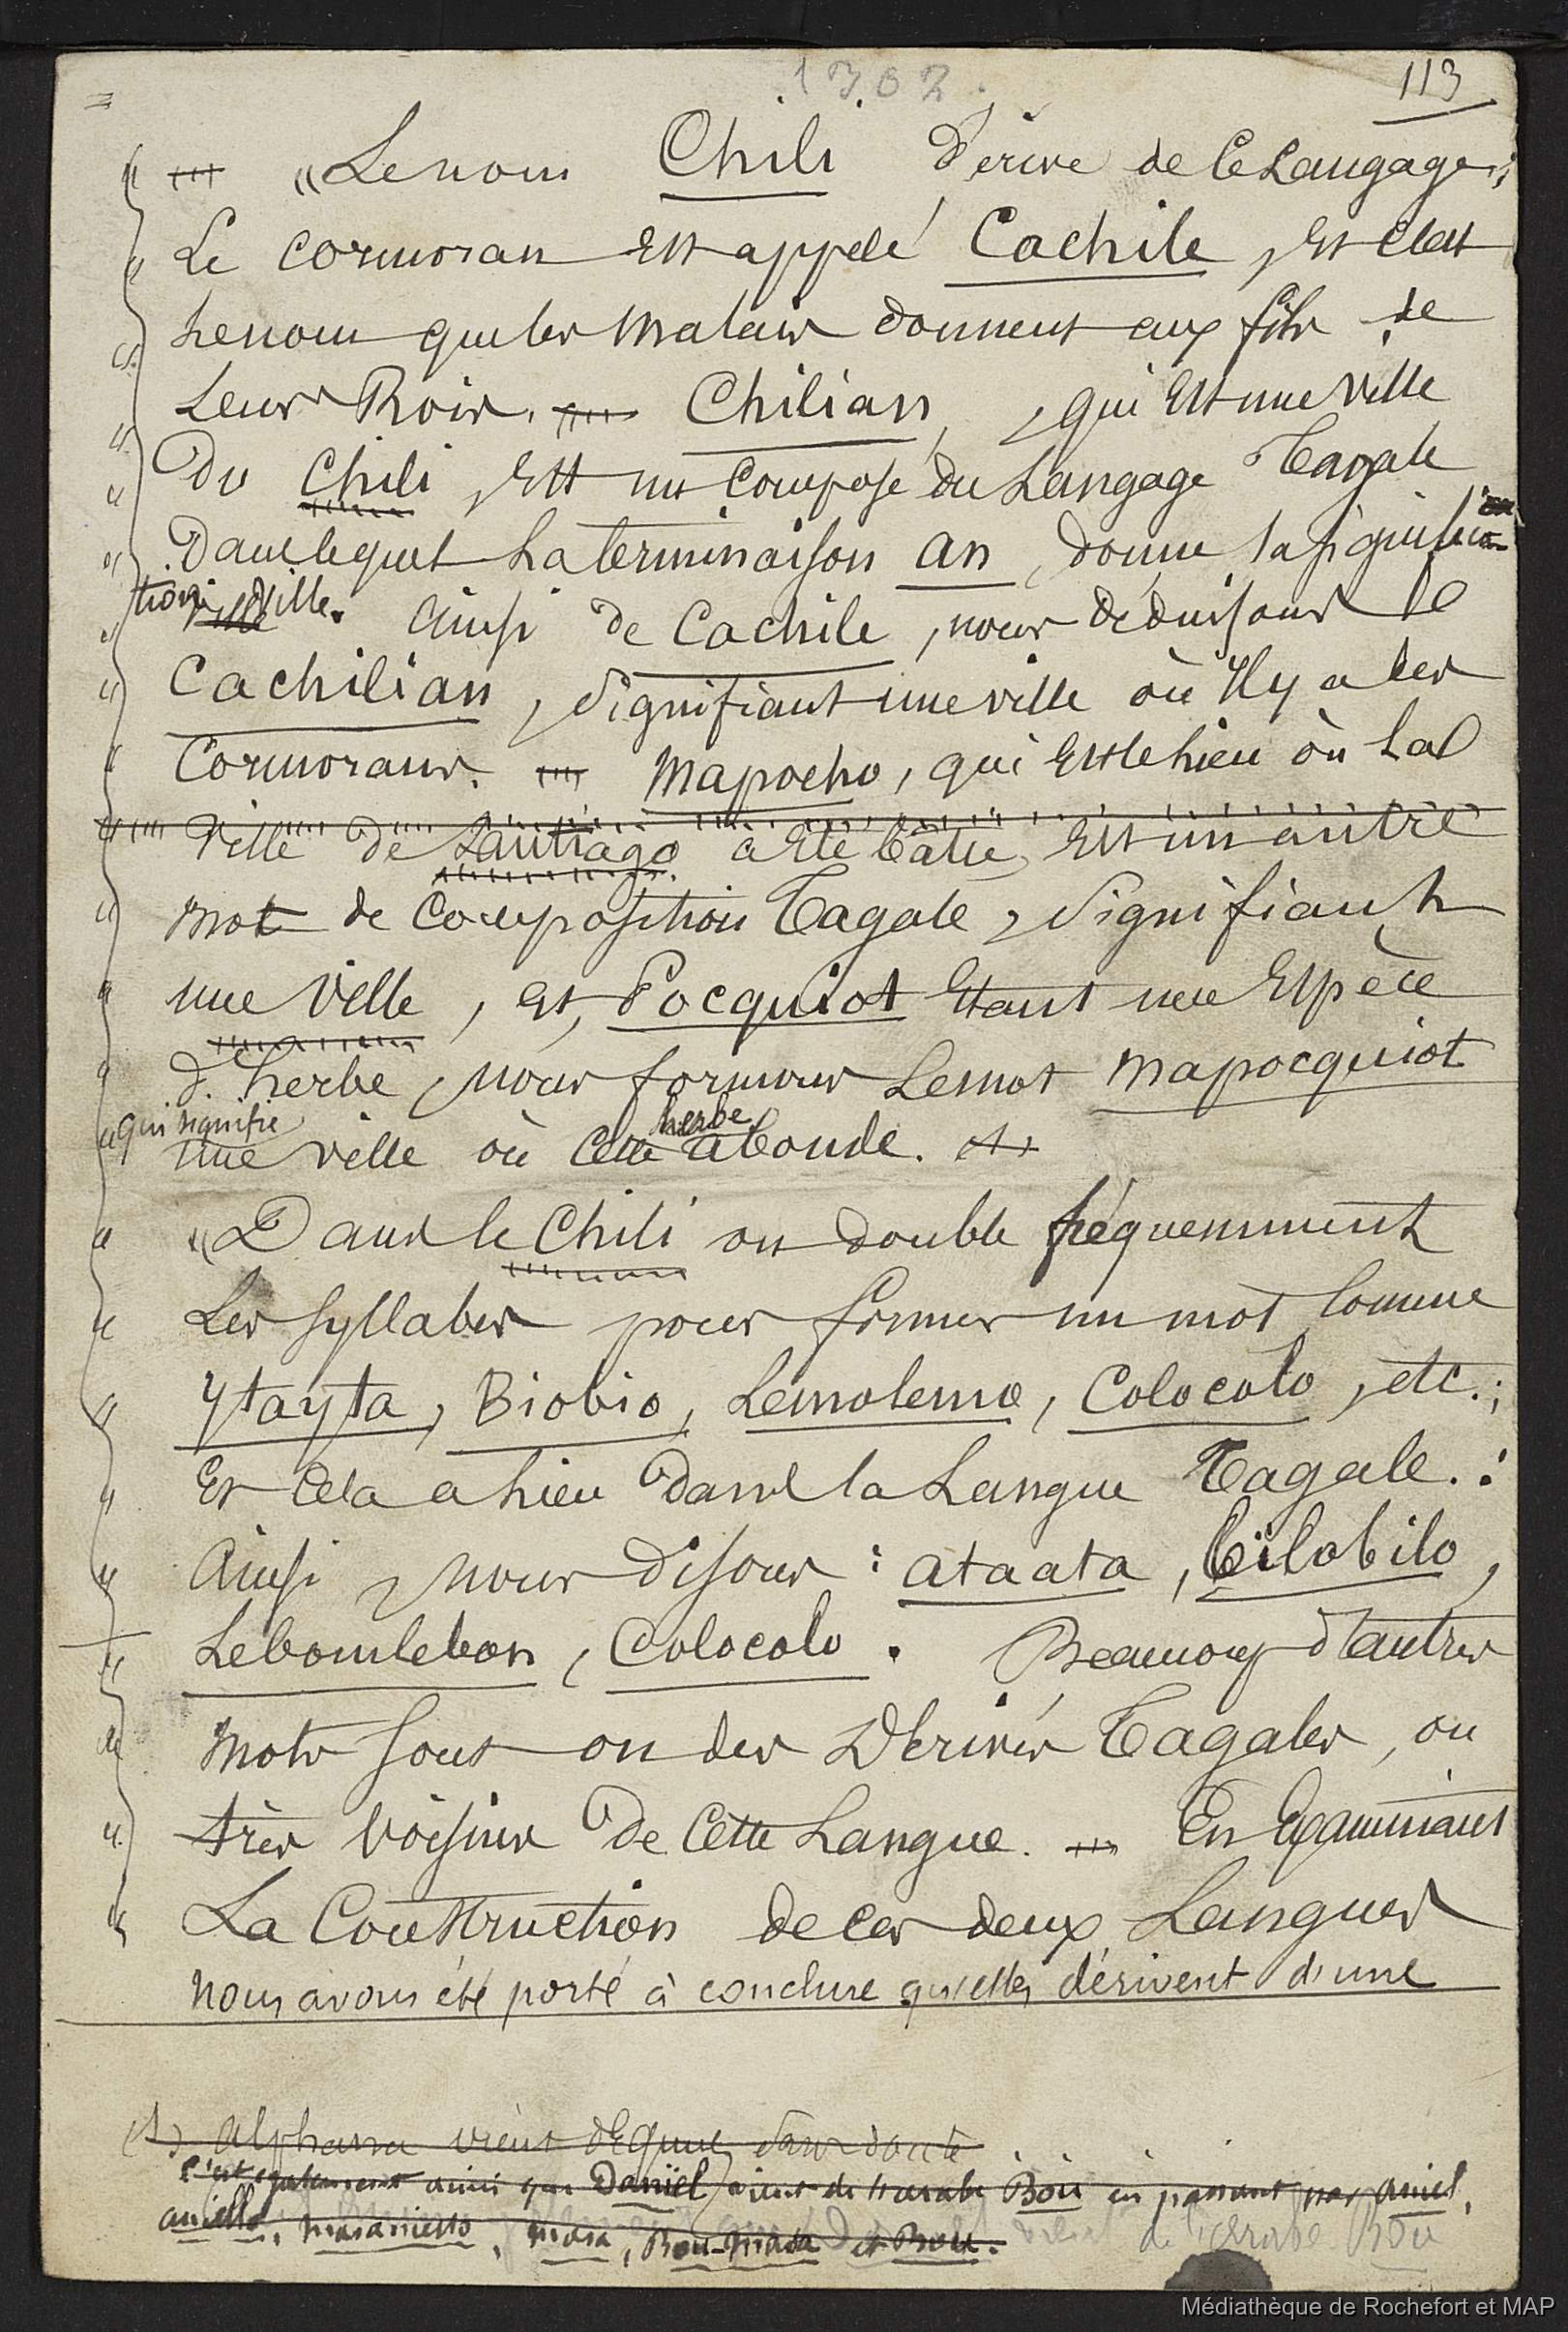 1302.
113
= 
" — « Le nom Chili dérive de ce Langage;
" Le cormoran est appelé Cachile, et c'est
" le nom que les Malais donnent aux fils de
" Leurs Rois. — Chilian, qui est une ville
" Du Chili, est un composé du Langage Tagale
" Dans lequel La terminaison an, donne la significa-
" tion ville. Ainsi de Cachile, nous déduisons le
" Cachilian, signifiant une ville où il y a des
" Cormorans. — Mapocho, qui est le lieu où la
" Ville de Santiago a été bâtie, est un autre
" mot de composition Tagale, signifiant
" une ville, et, Pocquiot étant une espèce
" d'herbe, nous formons Le mot Mapocquiot
" qui signifie
" une ville où cette herbe abonde. —
" « Dans le Chili on double fréquemment
" Les syllabes pour former un mot, comme
" Ytayta, Biobio, Lemolemo, Colocolo, etc.;
" Et cela a lieu dans la Langue Tagale. :
" Ainsi, nous disons : ataata, bilobilo,
" Lebomlebon, Colocolo. Beaucoup d'autres
" mots sont ou des Dérivés Tagales, ou
" très voisins de cette Langue. — En Examinant
" La Construction de ces deux Langues
nous avons été porté à conclure qu'elles dérivent d'une
(1) Alphana vient d'Equus, sans doute
c'est également ainsi que Daniel vient de l'arabe Bou en passant par aniel,
aniello, masaniello, masa, Bou-Maza et Bou.
de l'arabe Bou
Médiathèque de Rochefort et MAP